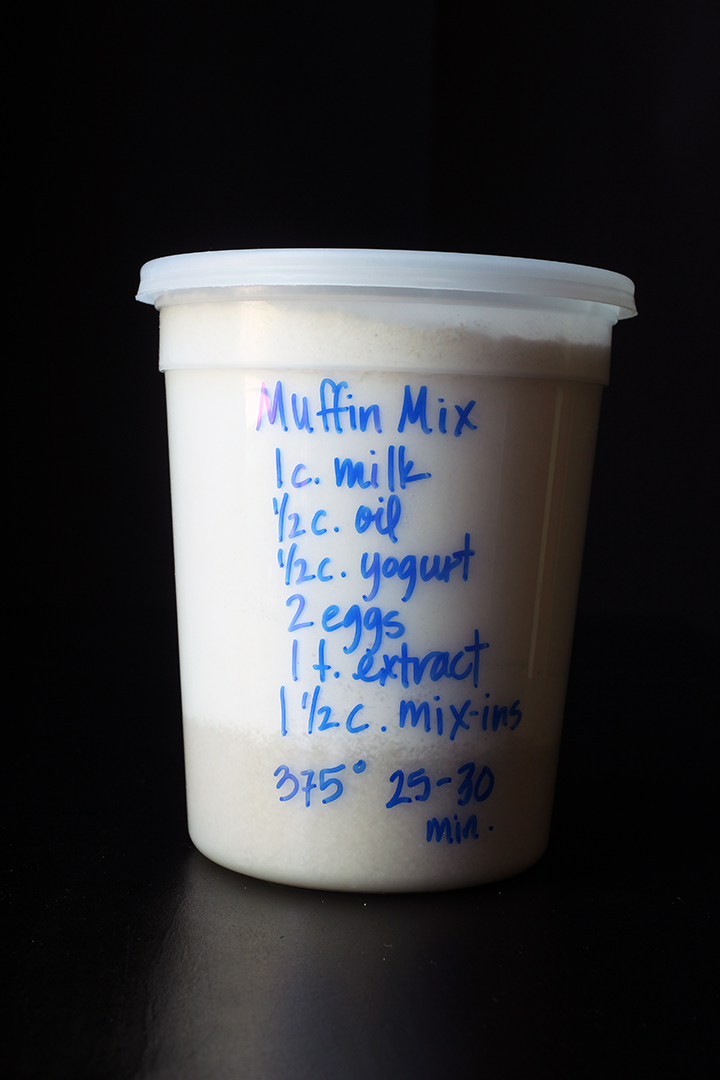 Muffin Mix
1 c. milk
½ c. oil
½ c. yogurt
2 eggs
1 t. extract
1 ½ c. mix-ins
375° 25-30
min.